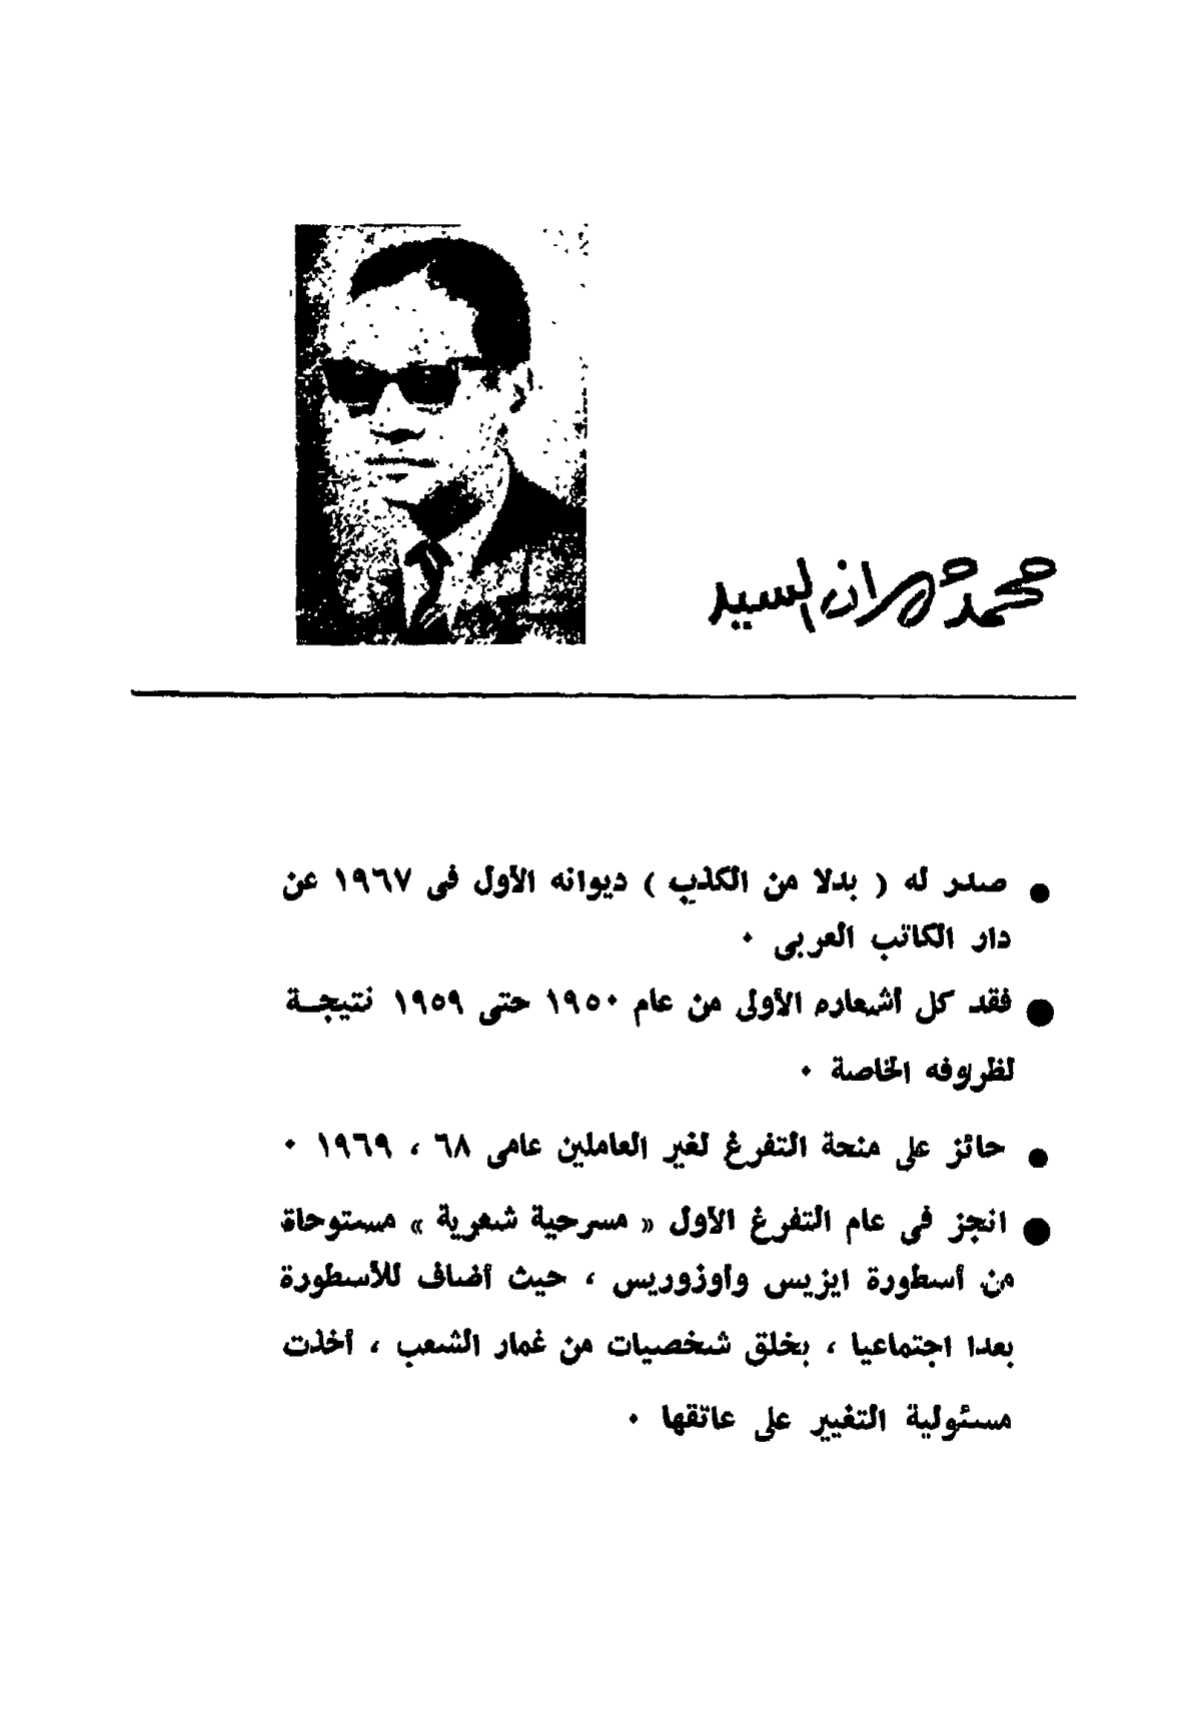 محمد مهران السيد
● صدر له ( بدلا من الكذب ) ديوانه الأول فى ١٩٦٧ عن
دار الكاتب العربى ٠
● فقد كل أشعاره الأولى من عام ١٩٥٠ حتى ١٩٥٩ نتيجـة
لظروفه الخاصة ٠
● حائز على منحة التفرغ لغير العاملين عامى ٦٨ ، ١٩٦٩ ٠
● انجز فى عام التفرغ الأول « مسرحية شعرية » مستوحاة
من أسطورة ايزيس وأوزوريس ، حيث أضاف للأسطورة
بعدا اجتماعيا ، بخلق شخصيات من غمار الشعب ، أخذت
مسئولية التغيير على عاتقها ٠